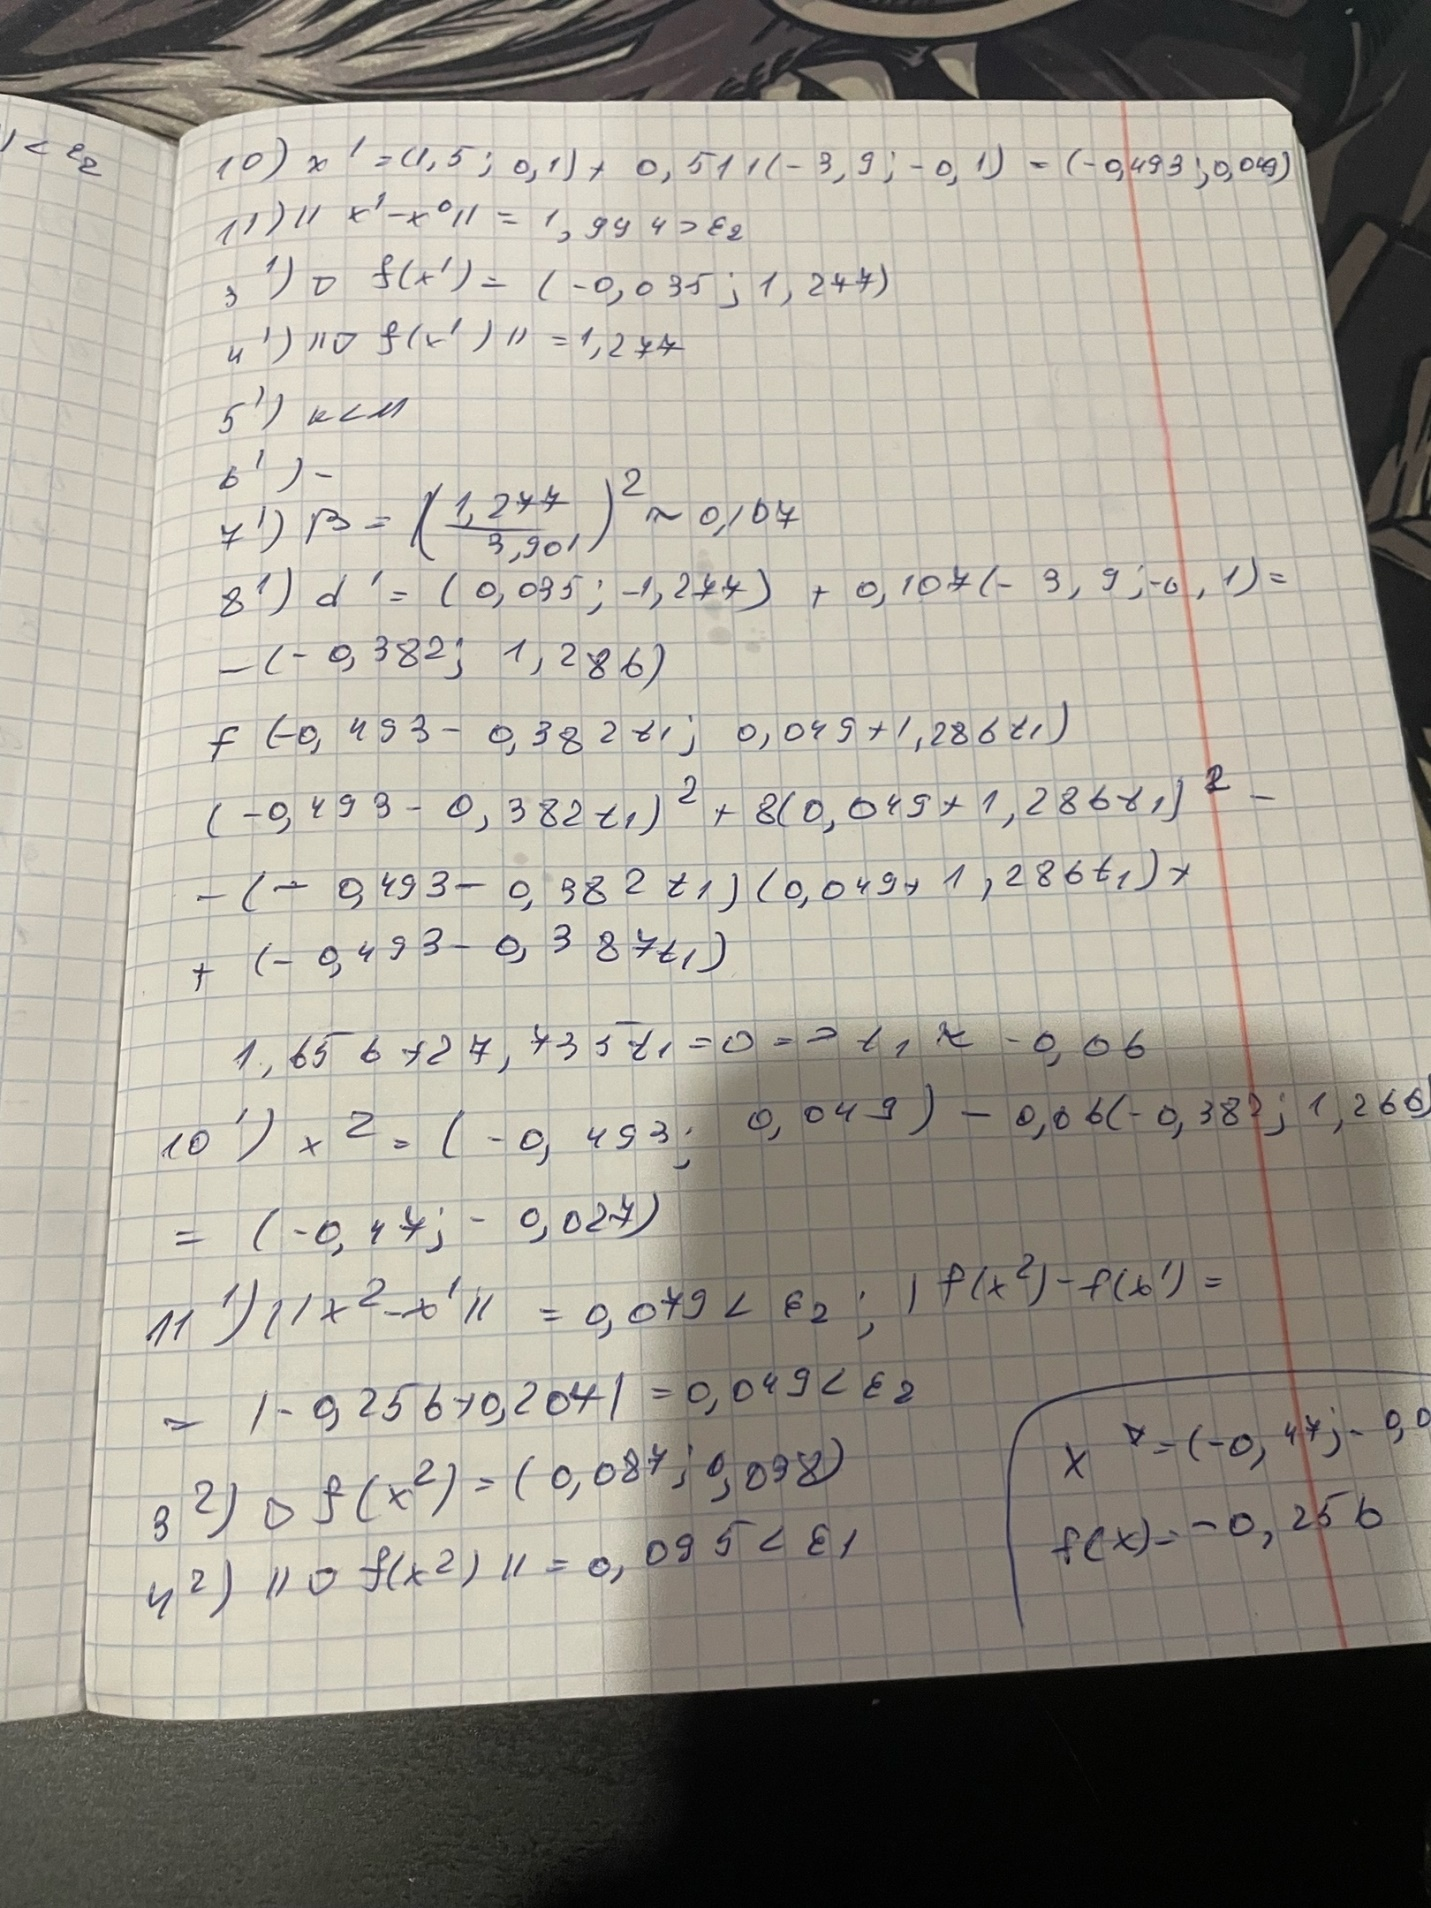 | < ε₂
10) x¹ = (1,5; 0,1) + 0,511(-3,9; -0,1) = (-0,493; 0,049)
11) || x¹-x⁰ || = 1,994 > ε₂
3¹) ∇ f(x¹) = (-0,035; 1,277)
4¹) || ∇ f(x¹) || = 1,277
5¹) k < M
6¹) -
7¹) β = (1,277/3,901)² ≈ 0,107
8¹) d¹ = (0,035; -1,277) + 0,107(-3,9; -0,1) =
- (-0,382; 1,286)
f (-0,493 - 0,382t₁; 0,049 + 1,286t₁)
(-0,493 - 0,382t₁)² + 8(0,049 + 1,286t₁)² -
- (-0,493 - 0,382t₁)(0,049 + 1,286t₁) +
+ (-0,493 - 0,387t₁)
1,656 + 27,735t₁ = 0 => t₁ ≈ -0,06
10¹) x² = (-0,493; 0,049) - 0,06(-0,382; 1,266)
= (-0,47; -0,027)
11¹) || x² - x¹ || = 0,079 < ε₂; | f(x²) - f(x¹) =
= |-0,256 + 0,207| = 0,049 < ε₂
3²) ∇ f(x²) = (0,087; 0,098)
4²) || ∇ f(x²) || = 0,095 < ε₁
x* = (-0,47; -0,0
f(x) = -0,256